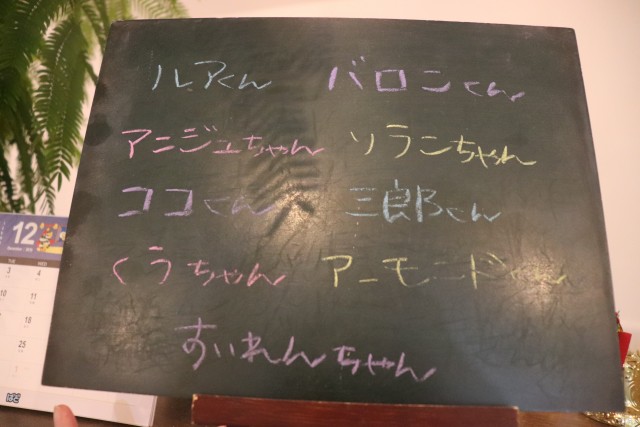 ルアくん バロンくん
アンジュちゃん ソランちゃん
ココくん 三郎くん
くうちゃん アーモンドくん
すいれんちゃん
12
TUE WED
3 4
10 11
18
25